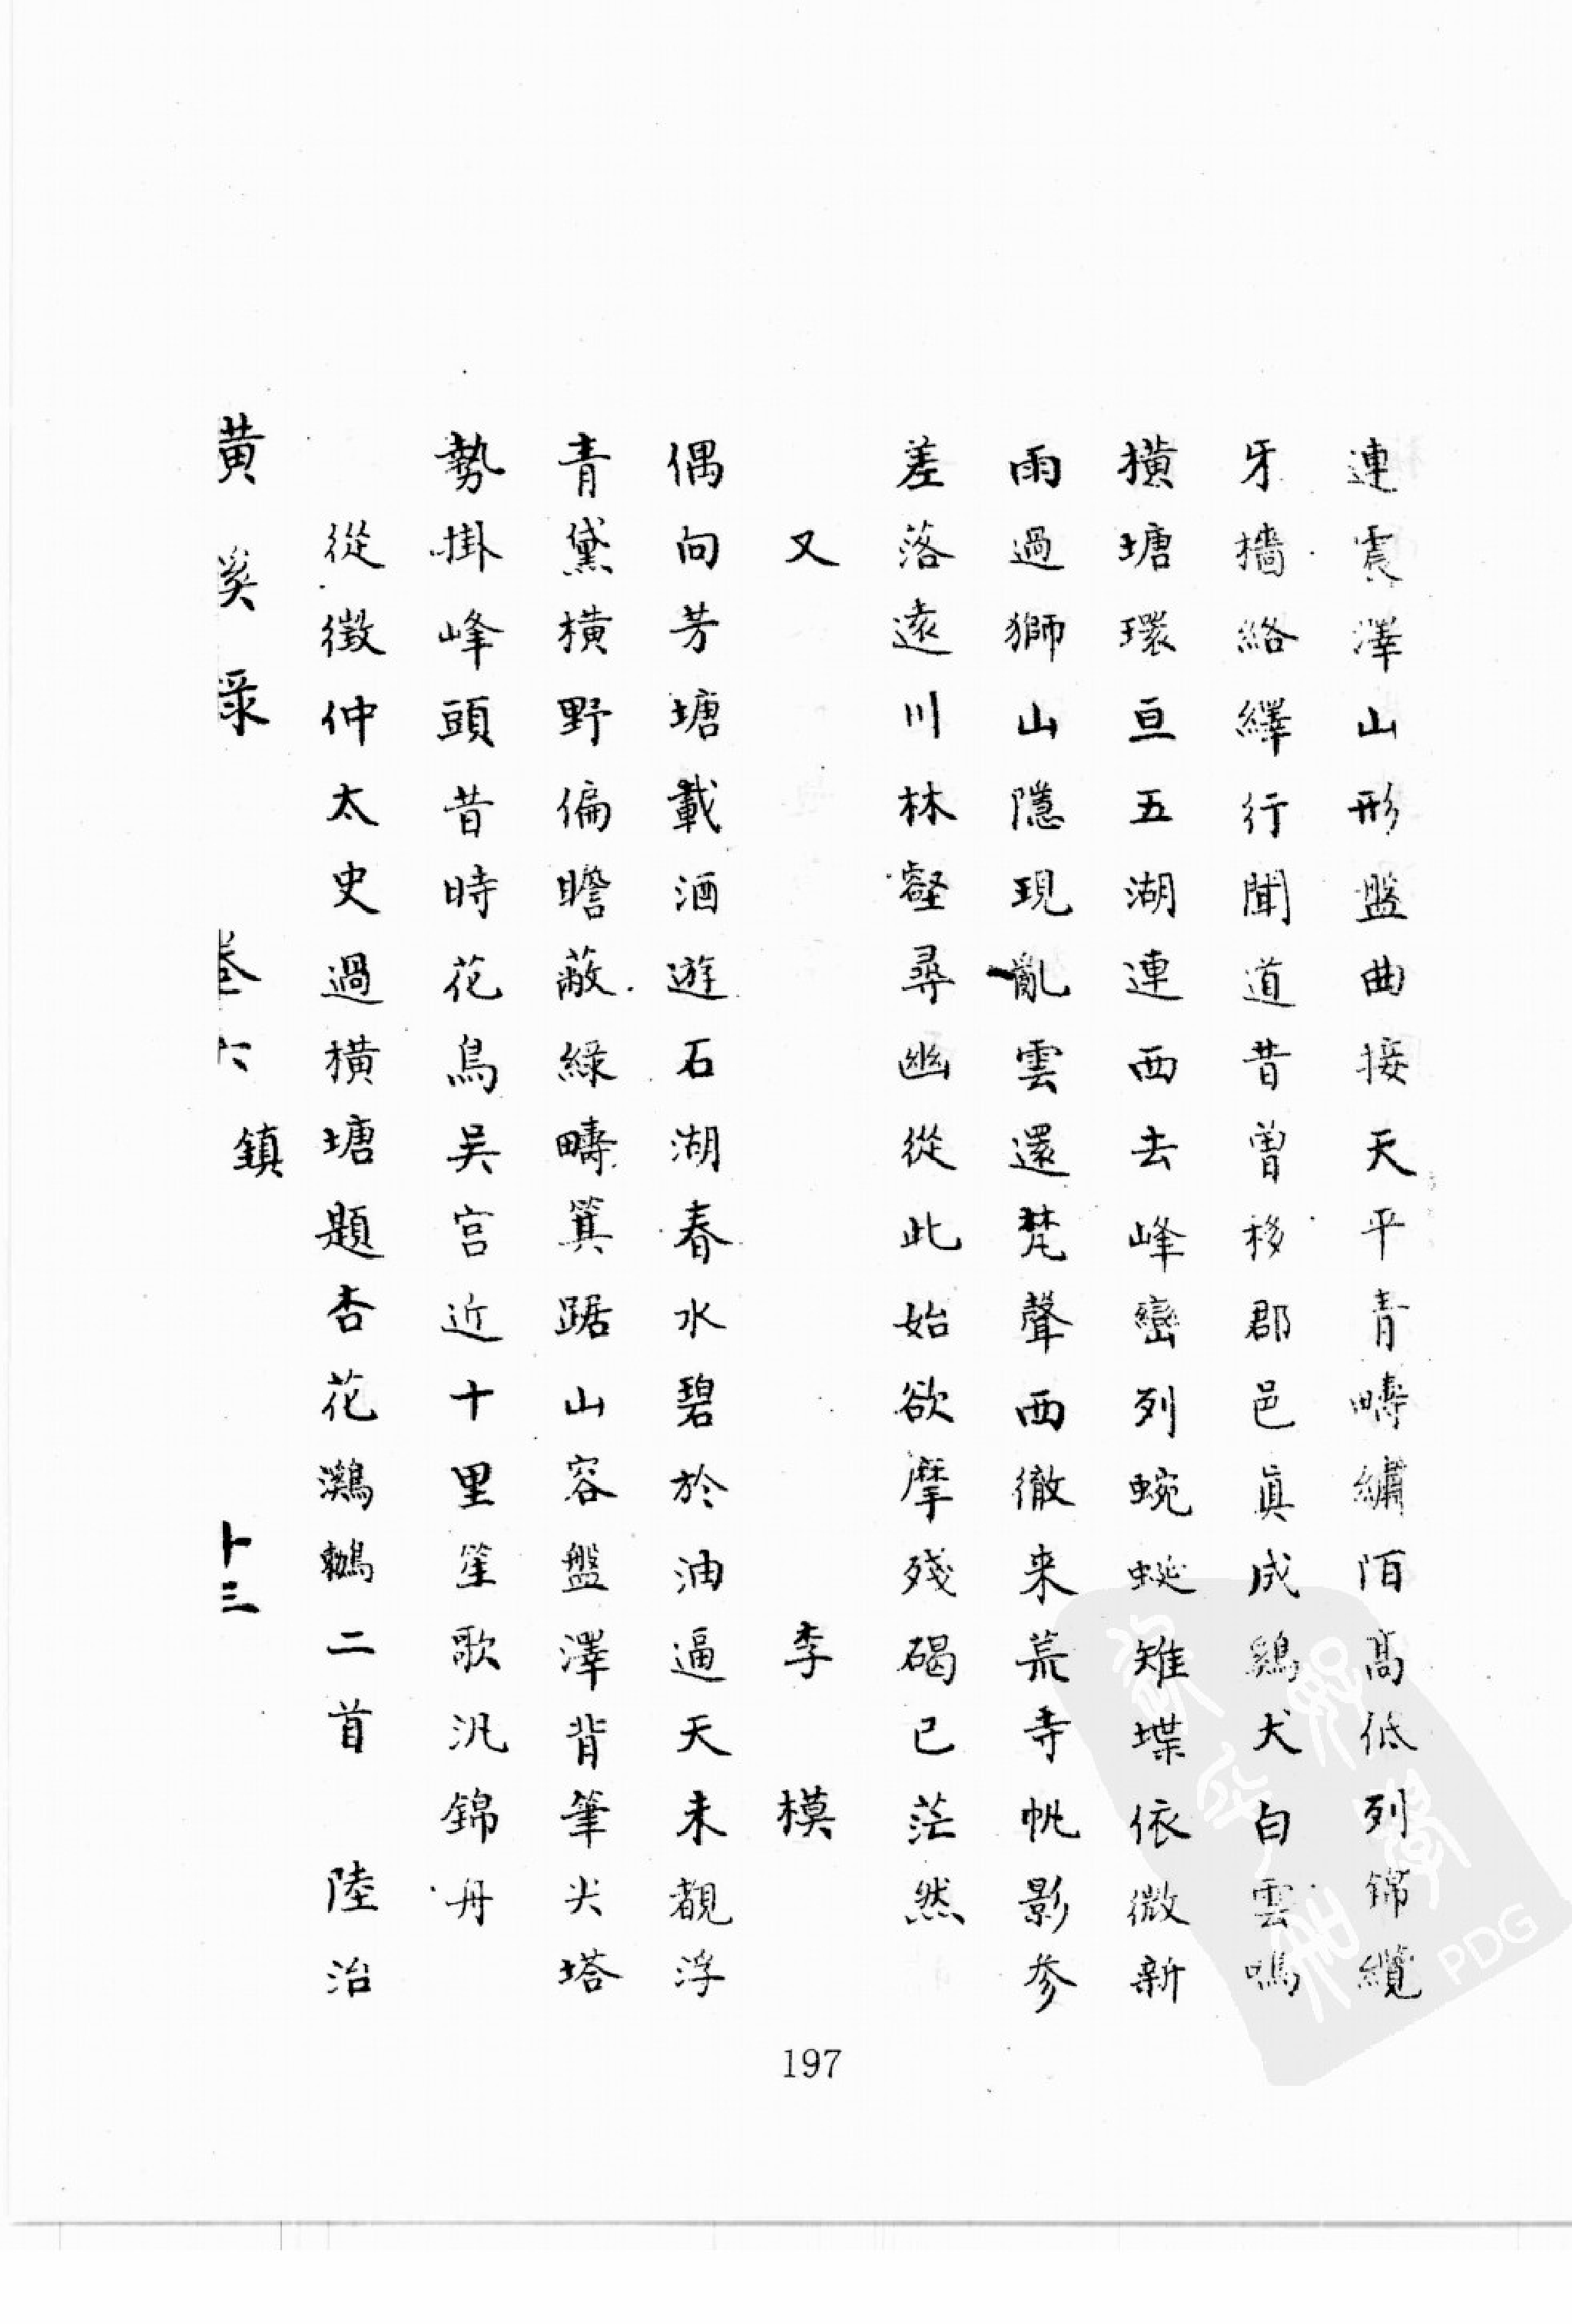 連震澤山形盤曲接天平青疇繡陌髙低列錦纜
牙檣絡繹行聞道昔曾移郡邑眞成鷄犬白雲鳴
橫塘環亘五湖連西去峰巒列蜿蜒雉堞依微新
雨過獅山隱現亂雲還梵聲西徹来荒寺帆影参
差落遠川林壑尋幽從此始欲摩殘碣已茫然
又 李模
偶向芳塘載酒遊石湖春水碧於油逼天未覩浮
青黛橫野偏瞻蔽綠疇箕踞山容盤澤背筆尖塔
勢掛峰頭昔時花鳥吴宫近十里笙歌汎錦舟
從徵仲太史過橫塘題杏花鸂鶒二首 陸治
黄 录 卷六 鎮 十三
197
PDG